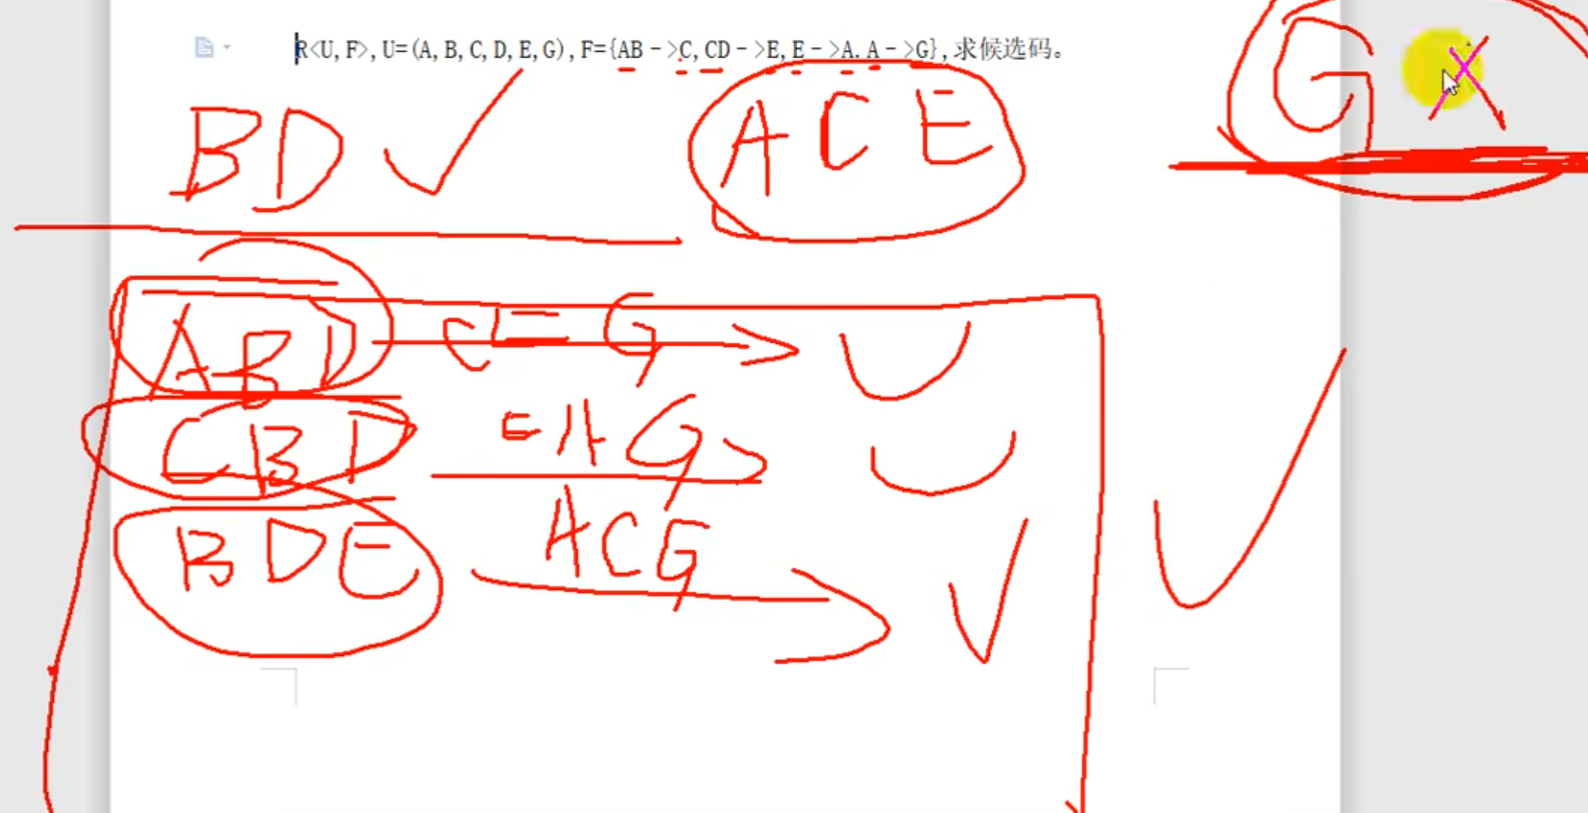 R<U,F>,U=(A,B,C,D,E,G),F={AB->C,CD->E,E->A.A->G},求候选码。
BD ACE G
ABD CEG
CBD EAG
BDE ACG